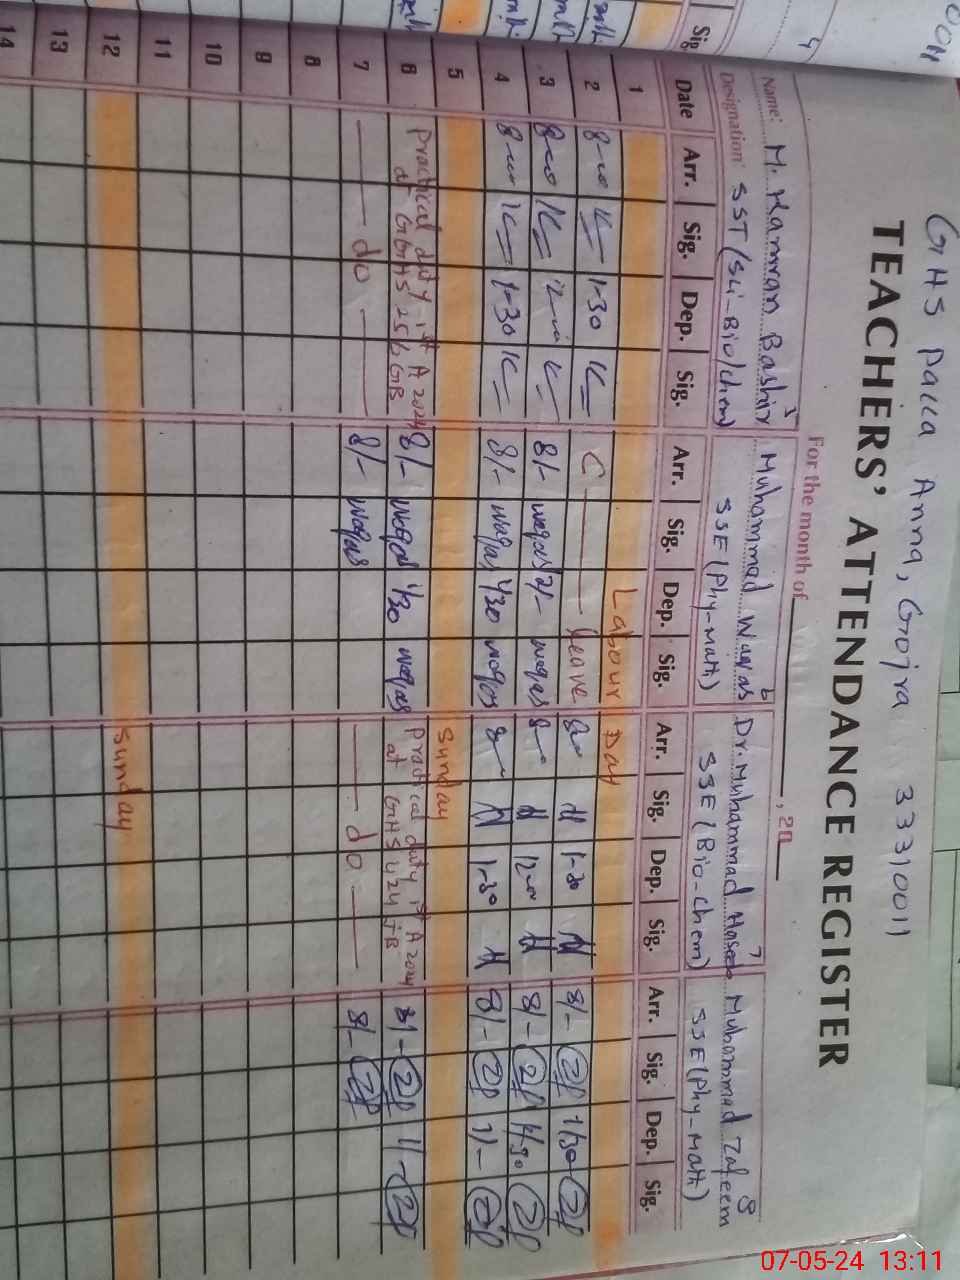 GHS Pacca Anna, Gojra 33310011
TEACHERS' ATTENDANCE REGISTER
For the month of , 20
5 6 7 8
Name: M. Kamran Bashir Muhammad Waqas Dr. Muhammad Muhammad Zafeem
Designation SST (Sci-Bio/Chem) SSE (Phy-Math) SSE (Bio-Chem) SSE (Phy-Math)
Sig. Date Arr. Sig. Dep. Sig. Arr. Sig. Dep. Sig. Arr. Sig. Dep. Sig. Arr. Sig. Dep. Sig.
1 Labour Day
2 8-00 1-30 C Leave 1-30 8/- 1/30
3 8-00 8/- waqas 12/- waqas 12-00 8/- 1/30
4 8-00 1-30 8/- waqas 1/30 waqas 1-30 8/- 11-
5 Sunday
6 Practical duty 1st A 2024 at GGHS 256 GB 8/- waqas 1/30 waqas Practical duty 1st A 2024 at GHS 424 JB 8/- 11-
7 do 8/- waqas do 8/-
8
9
10
11
12 Sunday
13
14
07-05-24 13:11